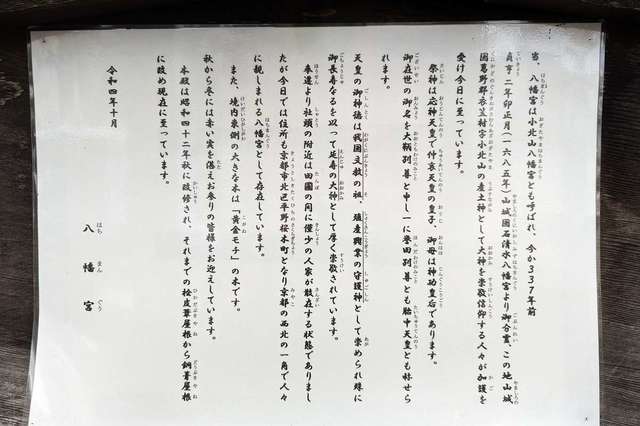 当、八幡宮は小北山八幡宮とも呼ばれ、今から337年前
貞亨二年卯正月(一六八五年)山城国石清水八幡宮より御分霊、この地山城
国葛野郡衣笠村字小北山の産土神として大神を崇敬信仰する人々が加護を
受け今日に至っています。
祭神は応神天皇で仲哀天皇の皇子、御母は神功皇后であります。
御在世の御名を大鞆別尊と申し一に誉田別尊とも胎中天皇とも称せら
れます。
天皇の御神徳は我国文教の祖、殖産興業の守護神として崇められ殊に
御長寿なるを以って延寿の大神として厚く崇敬されています。
奉遷より社頭の附近は田圃の間に僅少の人家が散在する状態でありまし
たが今日では住所も京都市北区平野桜木町となり京都の西北の一角で人々
に親しまれる八幡宮として存在しています。
また、境内東側の大きな木は「黄金モチ」の木です。
秋から冬には赤い実を湛えお参りの皆様をお迎えしています。
本殿は昭和四十二年秋に改修され、それまでの桧皮葺屋根から銅葺屋根
に改め現在に至っています。
令和四年十月
八幡宮